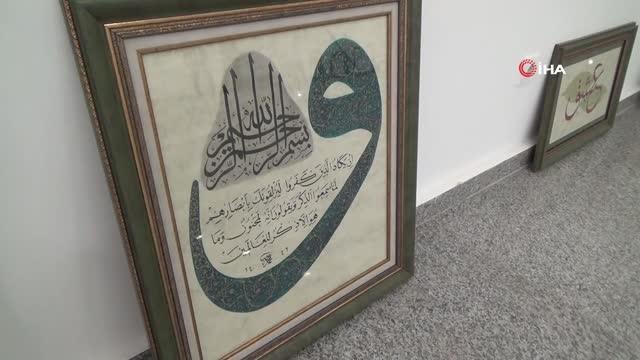 بسم الله الرحمن الرحيم
و
ان يكاد الذين كفروا ليزلقونك بابصارهم
لما سمعوا الذكر ويقولون انه لمجنون وما
هو الا ذكر للعالمين
İHA